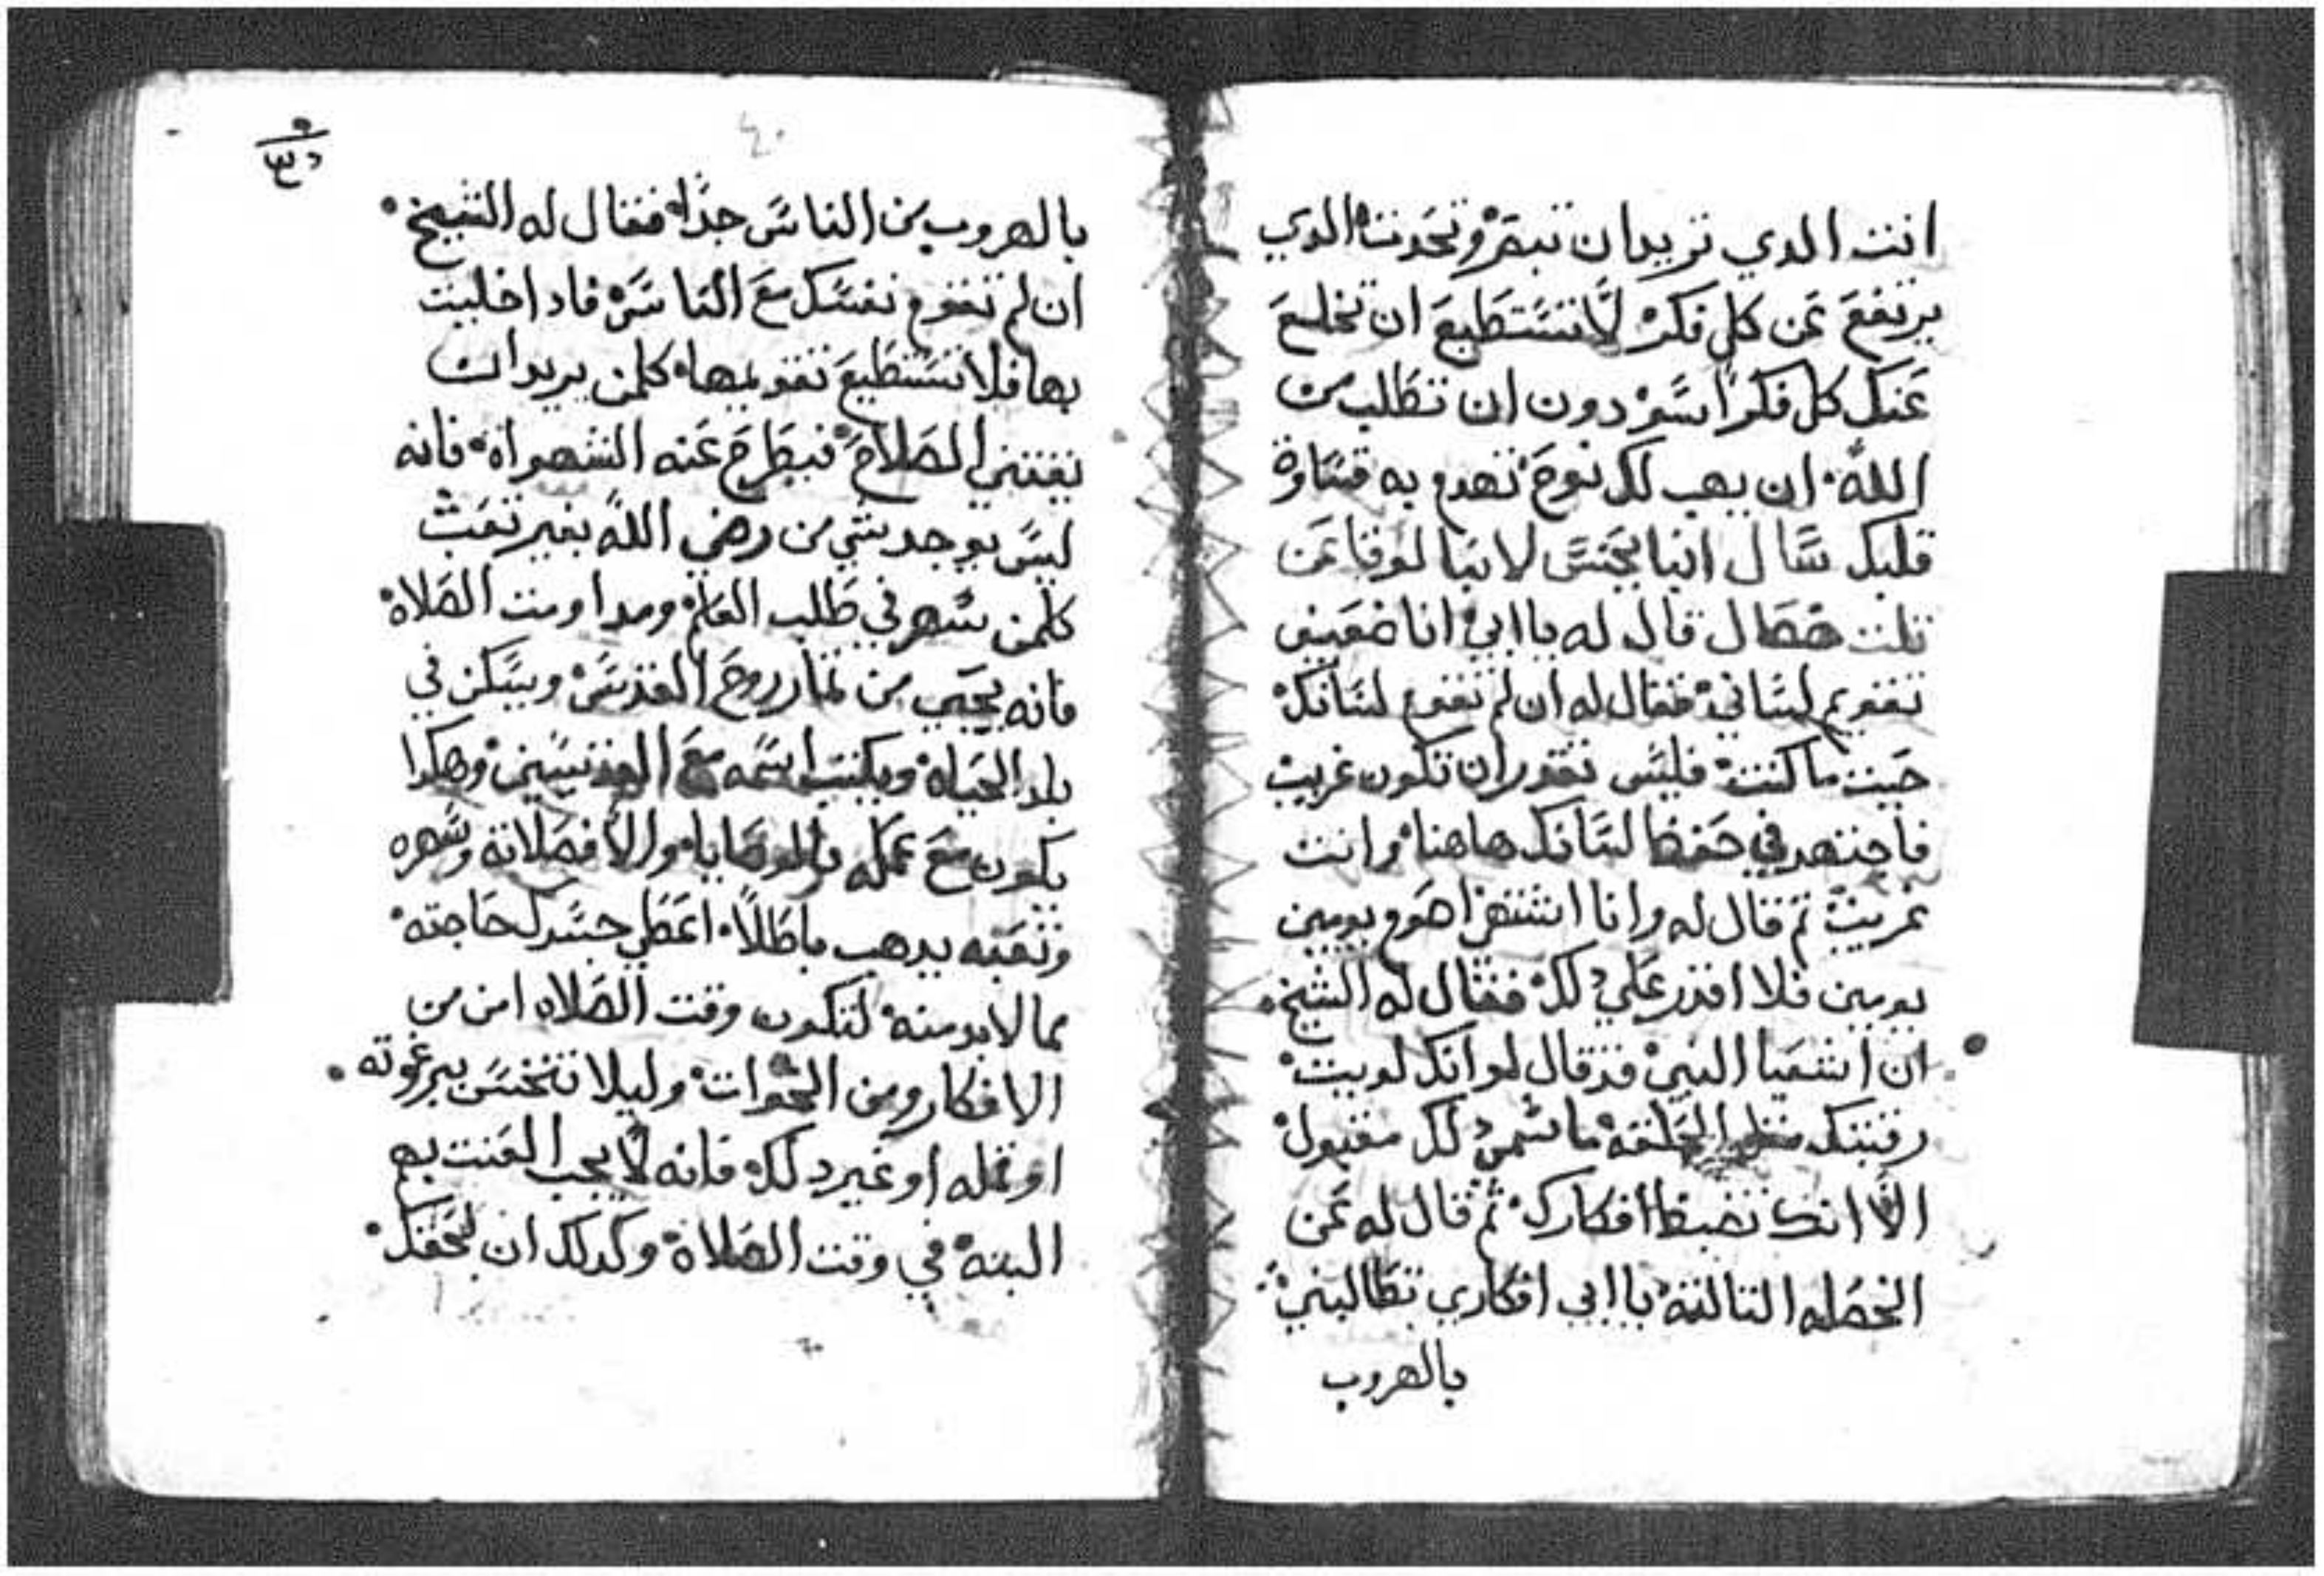 انت الدي تريد ان تبصر وتحدث الدي
يرتفع عن كل فكر لا تستطيع ان تخلع
عنك كل فكر اسود دون ان تطلب من
الله ان يهب لك نوح تهدم به قساوة
قلبك سال انبا يحنس لانبا لوقا عن
تلت خصال قال له يا ابي انا ضعيف
تقويم لساني فقال له ان لم تقوم لسانك
حيت ما كنت فليس تقدر ان تكون غريب
فاجتهد في حفظ لسانك هاهنا وانت
غريب تم قال له وانا اشتهي اصوم يومين
يومين فلا اقدر علي دلك فقال له الشيخ
ان اشعيا النبي قد قال لو انك لويت
رقبتك متل الحلقه ما سمي دلك مقبول
الا انك تضبط افكارك ثم قال له عن
الخصله التالته يا ابي افكاري تطالبني
بالهروب
٤٠
بالهروب من الناس جدا فقال له الشيخ
ان لم تقوم نفسك مع الناس فادا خليت
بها فلا تستطيع تقويمها كلمن يريد ان
يقتني الصلاح فيطرح عنه الشهواة فانه
ليس يوجد شي من رضي الله بغير تعب
كلمن سهر في طلب العلم ومداومت الصلاة
فانه يجني من تمار روح القدس ويسكن في
بلد الحياة ويكتب اسمه مع القديسين وهكدا
يكون مع عمله بالوصايا والا فصلاته وسهره
وتعبه يدهب باطلا اعطي جسدك حاجته
مما لابد منه لتكون وقت الصلاه امن من
الافكار ومن الحواث وليلا تنخس ببرغوته
او قمله او غير دلك فانه لا يجب العنت بها
البته في وقت الصلاة وكدلك ان لحقك